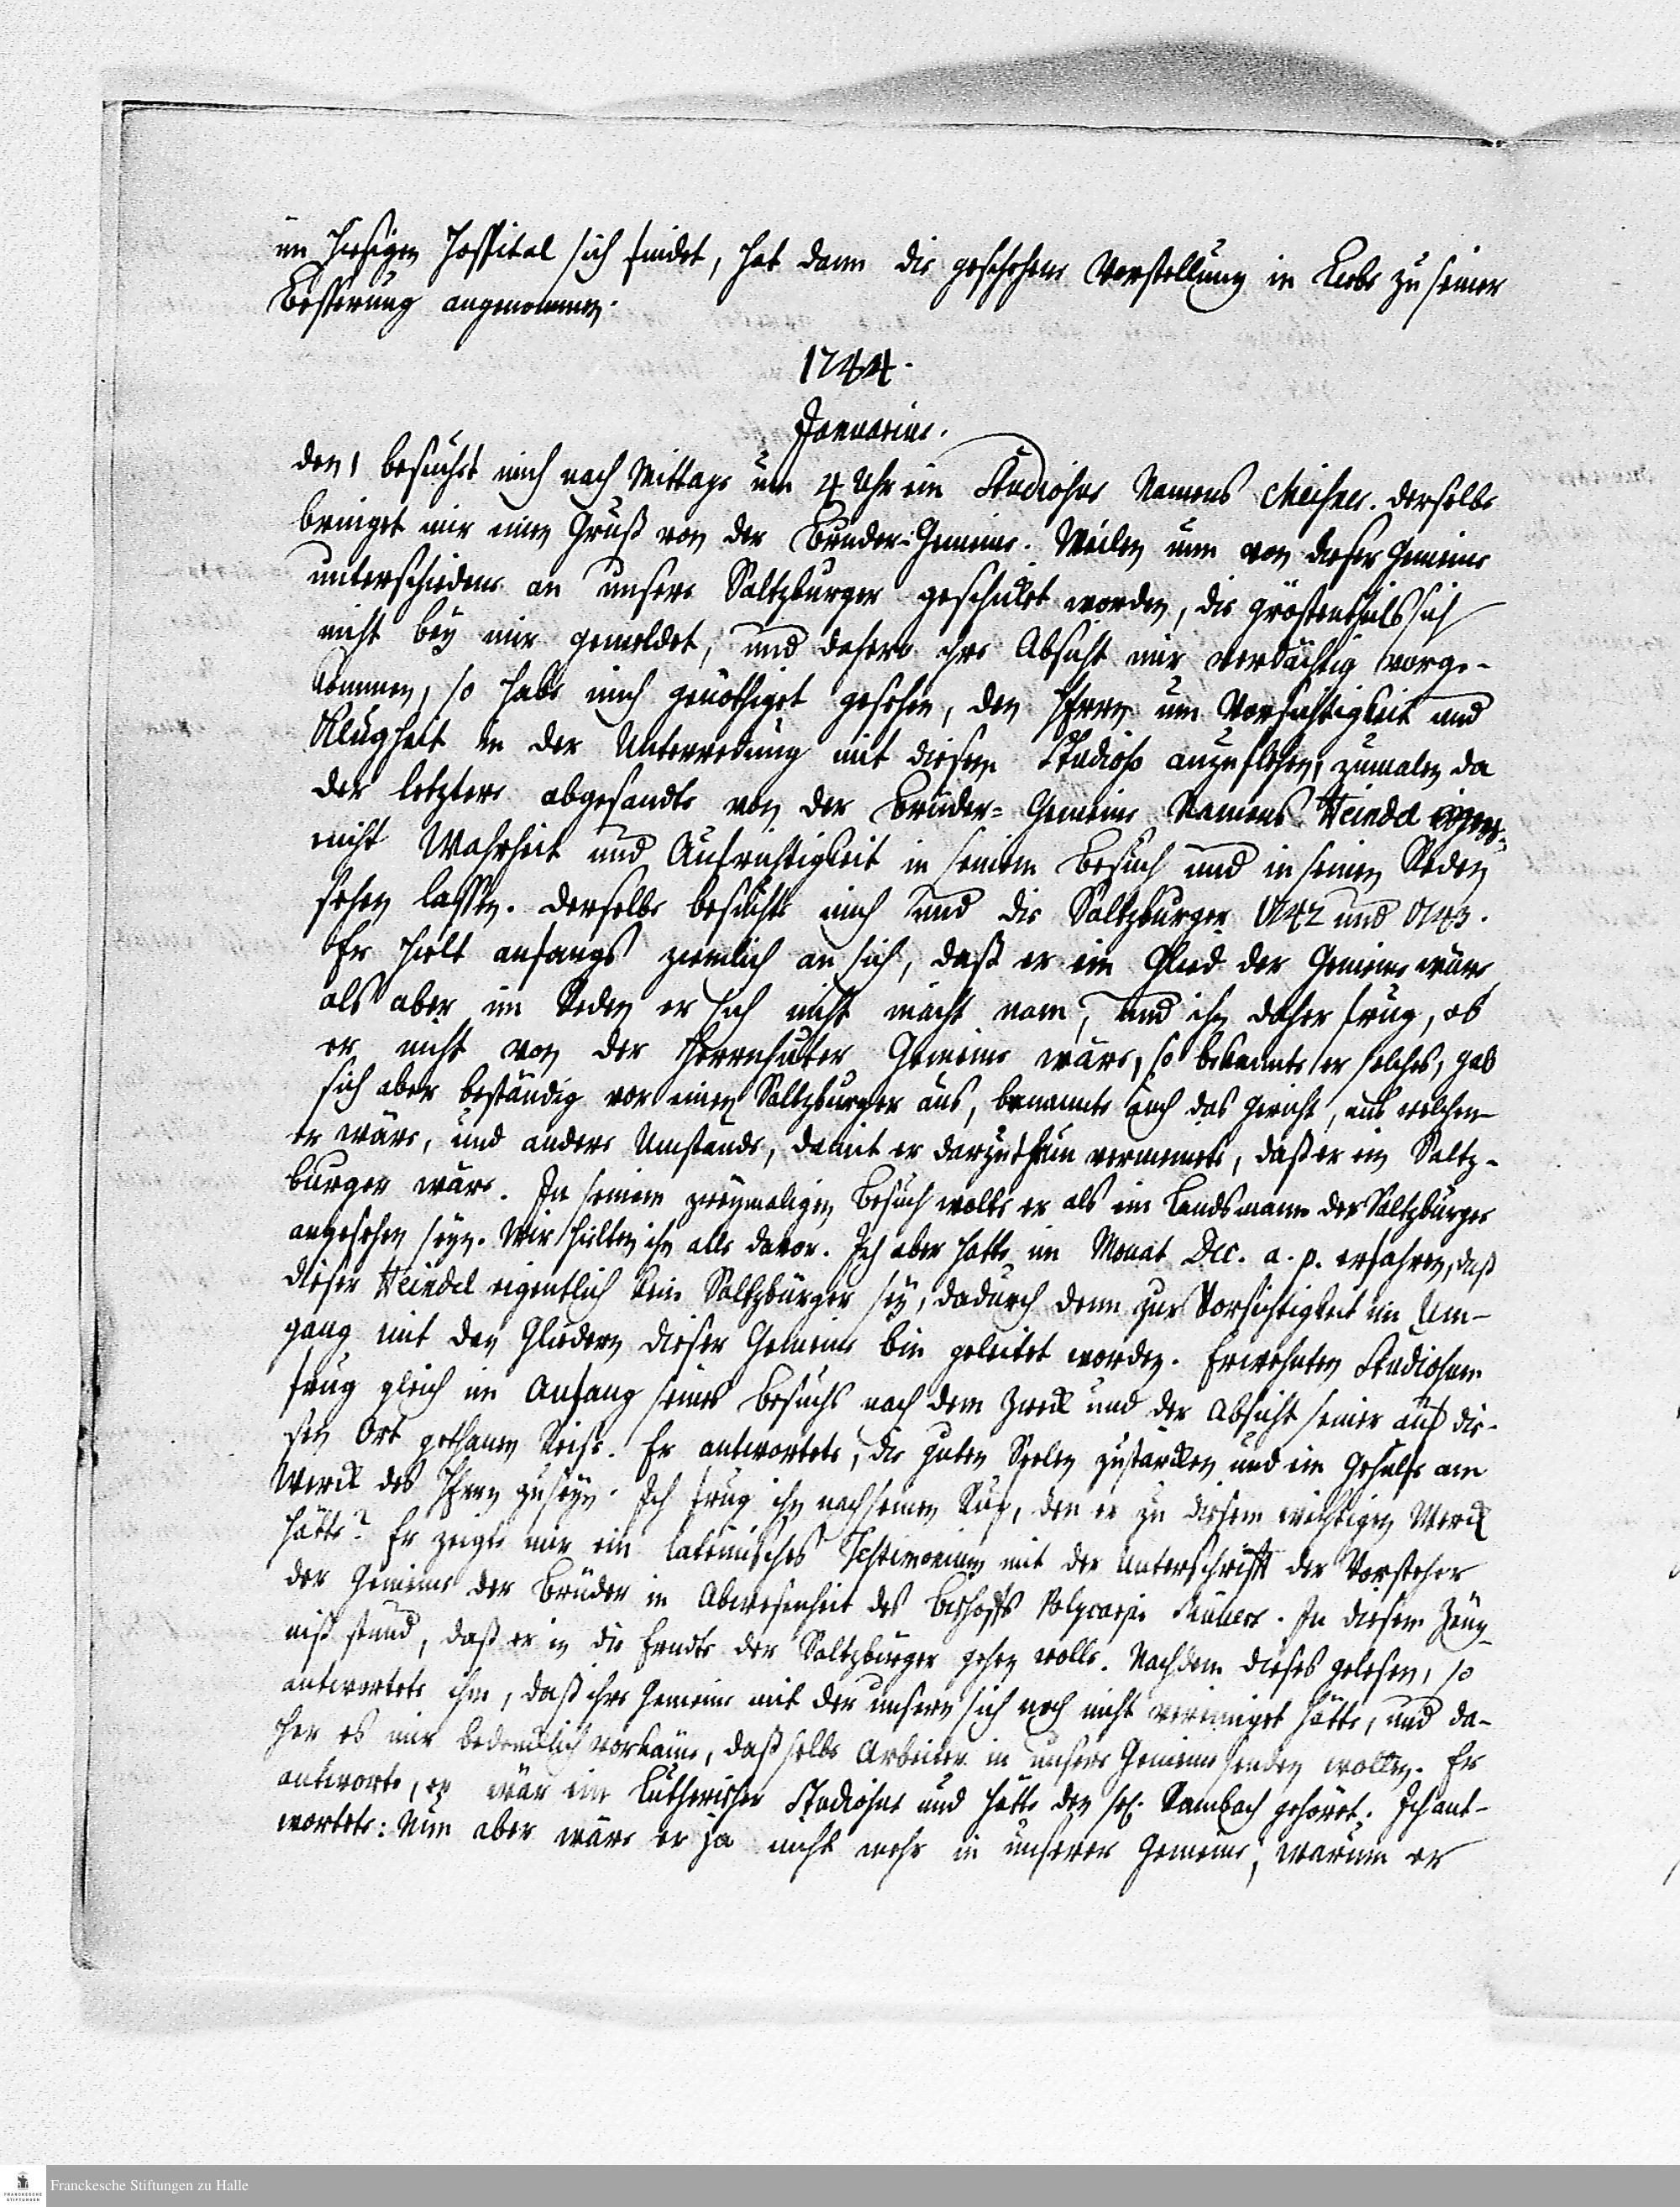 im hiesigen Hospital sich findet, hat dann die geschehene Vorstellung in Liebe zu seiner
Besserung angenommen.
1744.
Januarius.
den 1 besuchet mich nach Mittags um 4 Uhr ein Studiosus Namens Meisner. derselbe
bringet mir einen Gruß von der Brüder-Gemeine. Weilen nun von dieser Gemeine
unterschiedene an unsere Saltzburger geschickt worden, die gröstentheils sich
nicht bey mir gemeldet, und dahero ihre Absicht mir verdächtig vorge-
kommen, so habe mich genöthiget gesehen, den Herrn um Vorsichtigkeit und
Klugheit in der Unterredung mit diesem Studioso anzuflehen, zumalen da
der letztere abgesandte von der Brüder-Gemeine Namens Heindel
nicht Wahrheit und Aufrichtigkeit in seinem Besuch und in seinen Reden
sehen lassen. derselbe besuchte mich und die Saltzburger 1742 und 1743.
Er hielt anfangs ziemlich an sich, daß er ein Glied der Gemeine wäre,
als aber im Reden er sich nicht in acht nam, und ihn daher frug, ob
er nicht von der Herrnhuter Gemeine wäre, so bekannte er solches, gab
sich aber beständig vor einen Saltzburger aus, benannte auch das Gericht, aus welchen
er wäre, und andere Umstände, damit er darzuthun vermeinete, daß er ein Saltz-
burger wäre. In seinem zweymaligen Besuch wolte er als ein Landsmann der Saltzburger
angesehen seyn. Wir hielten ihn alle davor. Ich aber hatte im Monat Dec. a. p. erfahren, daß
dieser Heindel eigentlich kein Saltzburger sey, dadurch denn zur Vorsichtigkeit im Um-
gang mit den Gliedern dieser Gemeine bin geleitet worden. Erwehnten Studiosum
frug gleich im Anfang seines Besuchs nach dem Zweck und der Absicht seiner auf die-
sen Ort gethanen Reise. Er antwortete, die guten Seelen zu stärcken und ein Gehülfe am
Werck des Herrn zu seyn. Ich frug ihn nach seinen Ruf, den er zu diesem wichtigen Werck
hätte? Er zeigte mir ein lateinisches Testimonium mit der Unterschrifft der Vorsteher
der Gemeine der Brüder in Abwesenheit des Bischoffs Polycarpi Müllers. In diesem Zeug-
niß stund, daß er in die Erndte der Saltzburger gehen wolle. Nachdem dieses gelesen, so
antwortete ihm, daß ihre Gemeine mit der unsern sich noch nicht vereiniget hätte, und da-
her es mir bedencklich vorkäme, daß selbe Arbeiter in unsere Gemeine senden wollen. Er
antworte, er wär ein Lutherischer Studiosus und hätte den sel. Rambach gehöret. Ich ant-
wortete: Nun aber wäre er ja nicht mehr in unserer Gemeine, warum er
Franckesche Stiftungen zu Halle